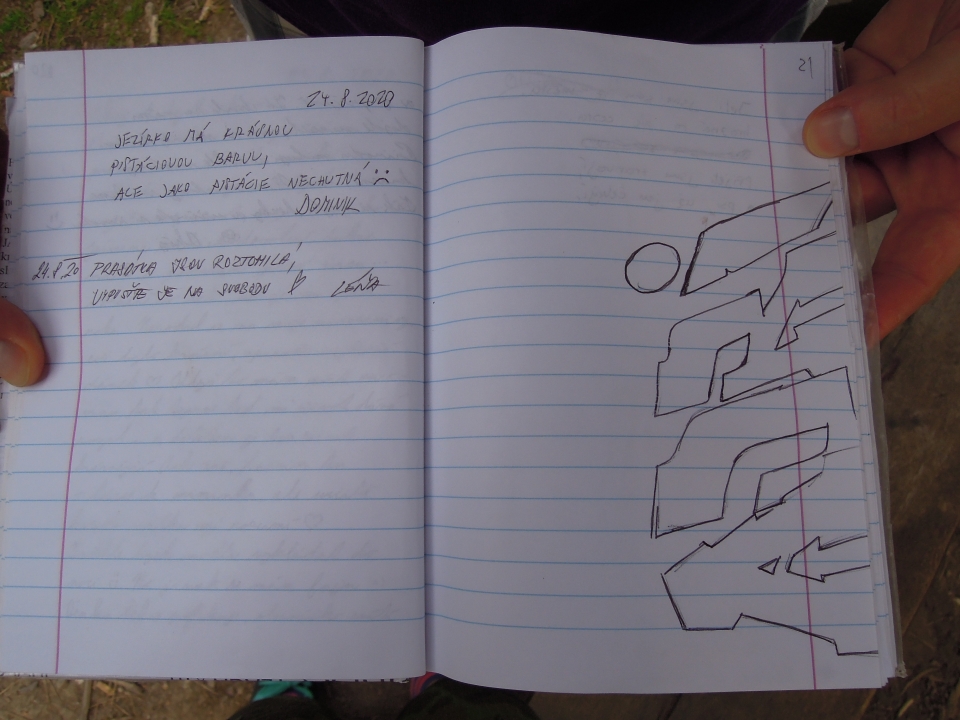 24.8.2020
JEZÍRKO MÁ KRÁSNOU
PISTÁCIOVOU BARVU,
ALE JAKO PISTÁCIE NECHUTNÁ :(
DOMINIK
24.8.20 PRASÁTKA JSOU ROZTOMILÁ,
VYPUSŤTE JE NA SVOBODU
LEŇA
21